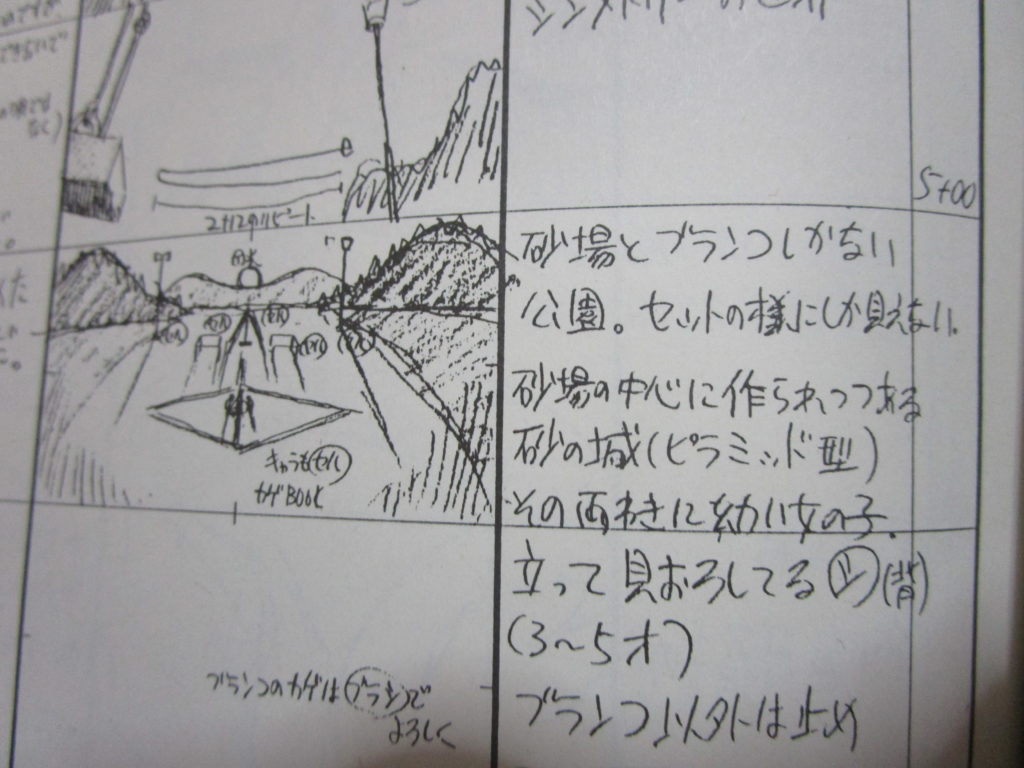 2+12のリピート
5+00
砂場とブランコしかない
公園。セットの様にしか見えない.
砂場の中心に作られつつある
砂の城(ピラミッド型)
その両わきに幼い女の子.
立って見おろしてる シ (背)
(3〜5才)
ブランコ以外は止め
キャラも セル
カゲBOOK
ブランコのカゲは ブラシ で
よろしく